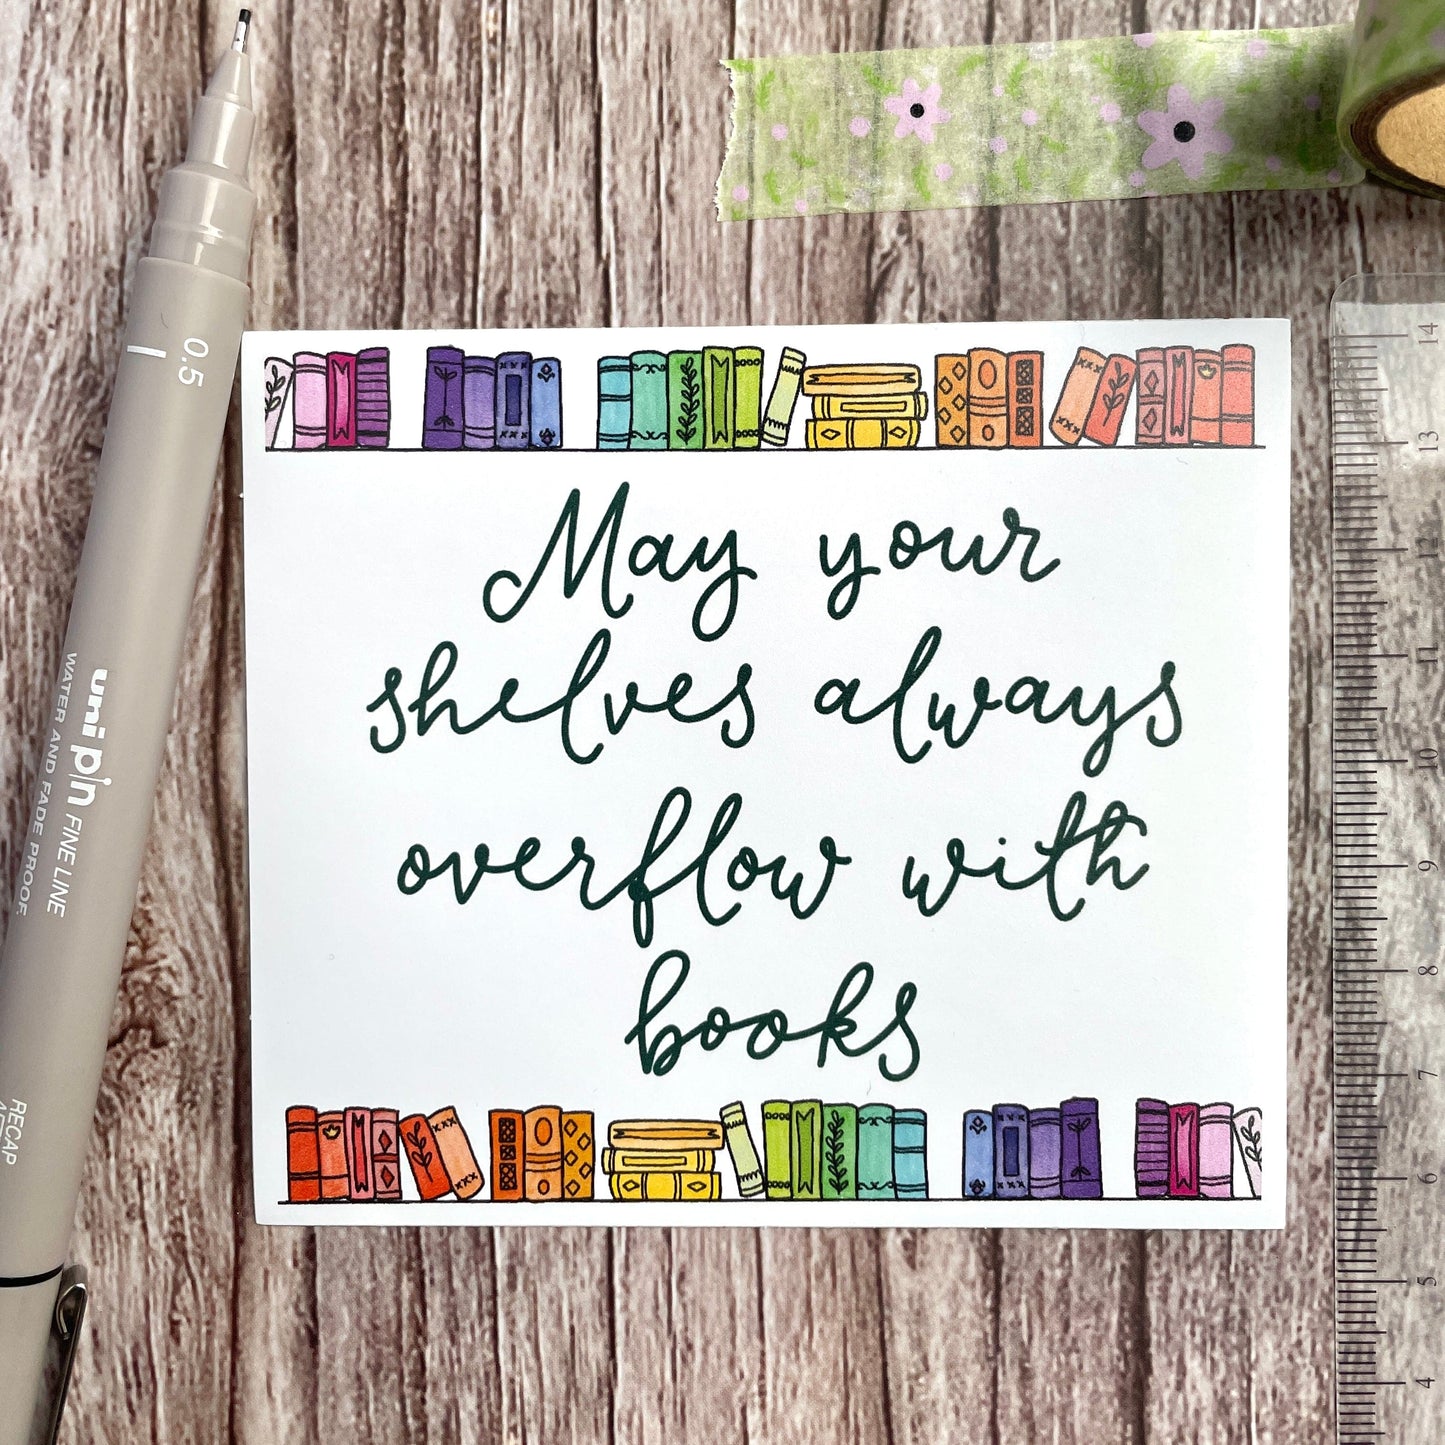 0.5
uni pin FINE LINE
WATER AND FADE PROOF.
RECAP
May your
shelves always
overflow with
books
14
13
12
11
10
9
8
7
6
5
4